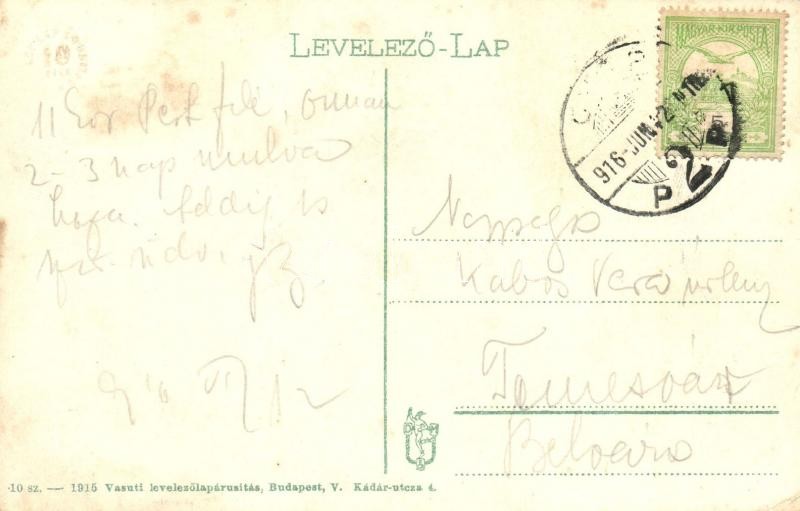 LEVELEZŐ-LAP
MAGYAR KIR. POSTA
916 JUN 12
P
11 Pest felé, onnan
2-3 nap mulva
haza. Addig is
üdv.
916 VI/12
Nagysága
Kabos Vera úrleány
Temesvár
Belváros
·10 sz. — 1915 Vasuti levelezőlapárusitás, Budapest, V. Kádár-utcza 4.